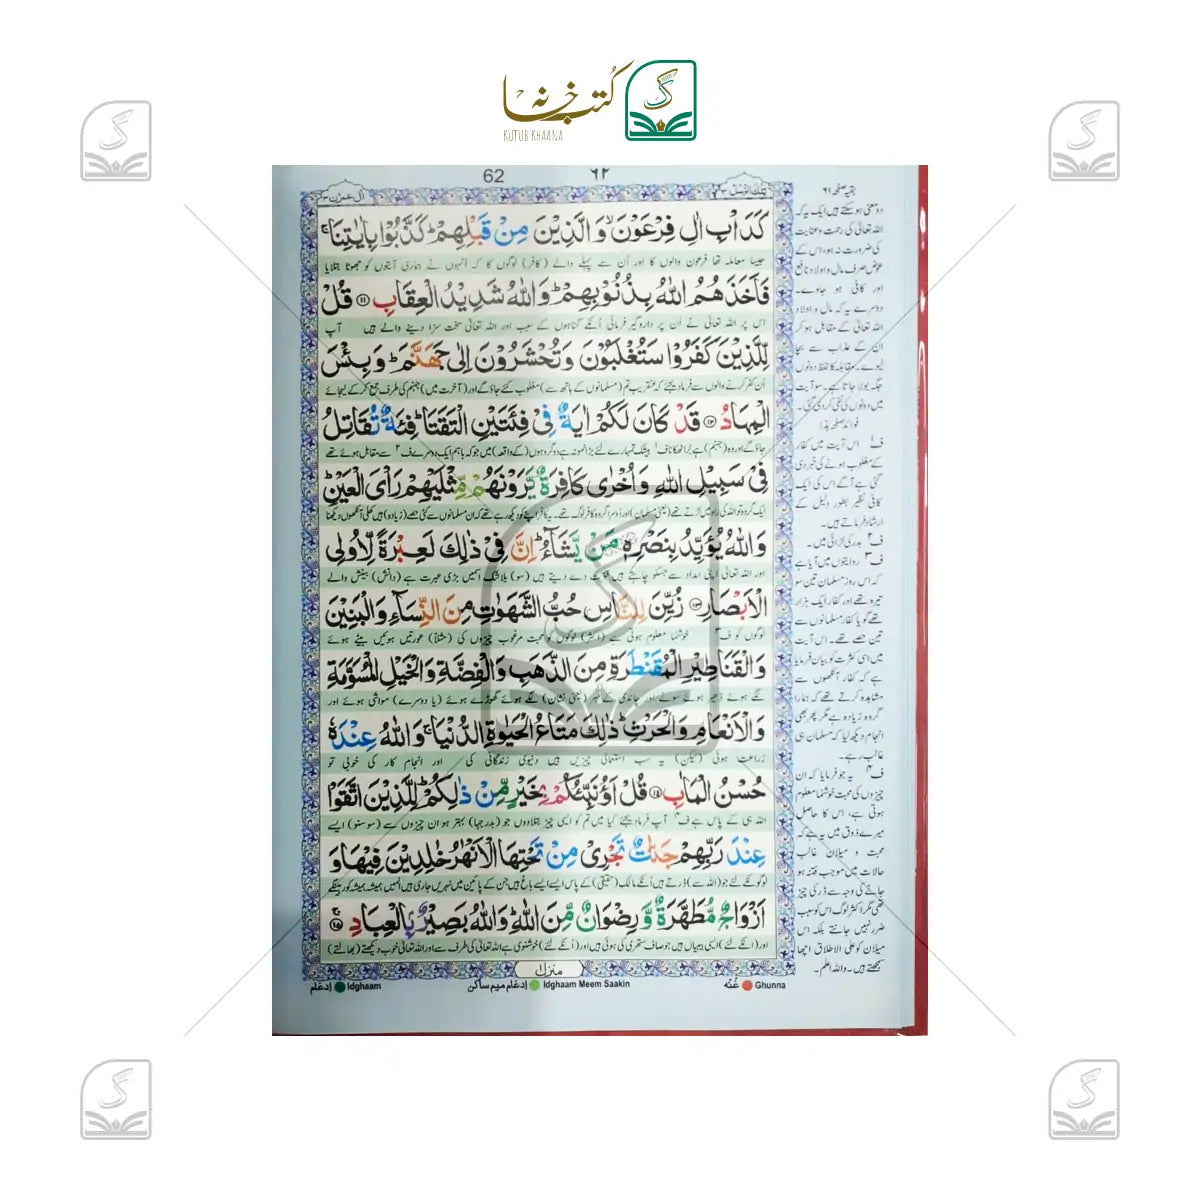 کتب خانہ
KUTUB KHAANA
62
۶۲
اٰل عمرٰن ۳
تلک الرسل ۳
كَدَاْبِ اٰلِ فِرْعَوْنَ ۙ وَالَّذِيْنَ مِنْ قَبْلِهِمْ ؕ كَذَّبُوْا بِاٰيٰتِنَا ۚ
جیسا معاملہ تھا فرعون والوں کا اور اُن سے پہلے والے (کافر) لوگوں کا کہ اُنہوں نے ہماری آیتوں کو جھوٹا بتلایا
فَاَخَذَهُمُ اللّٰهُ بِذُنُوْبِهِمْ ؕ وَاللّٰهُ شَدِيْدُ الْعِقَابِ ۝۱۱ قُلْ
اس پر اللہ تعالیٰ نے اُن پر داروگیر فرمائی اُنکے گناہوں کے سبب اور اللہ تعالیٰ سخت سزا دینے والے ہیں آپ
لِّلَّذِيْنَ كَفَرُوْا سَتُغْلَبُوْنَ وَتُحْشَرُوْنَ اِلٰى جَهَنَّمَ ؕ وَبِئْسَ
اُن کفر کرنے والوں سے فرما دیجئے کہ عنقریب تم (مسلمانوں کے ہاتھ سے) مغلوب کئے جاؤ گے اور (آخرت میں) جہنم کی طرف جمع کر کے لیجائے
الْمِهَادُ ۝۱۲ قَدْ كَانَ لَكُمْ اٰيَةٌ فِيْ فِئَتَيْنِ الْتَقَتَا ؕ فِئَةٌ تُقَاتِلُ
جاؤ گے اور وہ (جہنم) ہے بُرا ٹھکانا ف۱ بیشک تمہارے لئے بڑا نمونہ ہے دو گروہوں (کے واقعہ) میں جو کہ باہم ایک دوسرے ف۲ سے مقابل ہوئے تھے
فِيْ سَبِيْلِ اللّٰهِ وَاُخْرٰى كَافِرَةٌ يَّرَوْنَهُمْ مِّثْلَيْهِمْ رَاْيَ الْعَيْنِ ؕ
وَاللّٰهُ يُؤَيِّدُ بِنَصْرِهٖ مَنْ يَّشَآءُ ؕ اِنَّ فِيْ ذٰلِكَ لَعِبْرَةً لِّاُولِي
اور اللہ تعالیٰ اپنی امداد سے جسکو چاہتے ہیں قوت دے دیتے ہیں (سو) بلاشک اسمیں بڑی عبرت ہے (دانش) بینش والے
الْاَبْصَارِ ۝۱۳ زُيِّنَ لِلنَّاسِ حُبُّ الشَّهَوٰتِ مِنَ النِّسَآءِ وَالْبَنِيْنَ
لوگوں کو ف۳ خوشنما معلوم ہوتی ہے (اکثر) لوگوں کو محبت مرغوب چیزوں کی (مثلاً) عورتیں ہوئیں بیٹے ہوئے
وَالْقَنَاطِيْرِ الْمُقَنْطَرَةِ مِنَ الذَّهَبِ وَالْفِضَّةِ وَالْخَيْلِ الْمُسَوَّمَةِ
لگے ہوئے ڈھیر ہوئے سونے اور چاندی کے نمبر (یعنی نشان) لگے ہوئے گھوڑے ہوئے (یا دوسرے) مواشی ہوئے اور
وَالْاَنْعَامِ وَالْحَرْثِ ؕ ذٰلِكَ مَتَاعُ الْحَيٰوةِ الدُّنْيَا ۚ وَاللّٰهُ عِنْدَهٗ
زراعت ہوئی (لیکن) یہ سب استعمالی چیزیں ہیں دنیوی زندگانی کی اور انجام کار کی خوبی تو
حُسْنُ الْمَاٰبِ ۝۱۴ قُلْ اَؤُنَبِّئُكُمْ بِخَيْرٍ مِّنْ ذٰلِكُمْ ؕ لِلَّذِيْنَ اتَّقَوْا
اللہ ہی کے پاس ہے ف۴ آپ فرما دیجئے کیا میں تم کو ایسی چیز بتلادوں جو (بدرجہا) بہتر ہو ان چیزوں سے (سو سنو) ایسے
عِنْدَ رَبِّهِمْ جَنّٰتٌ تَجْرِيْ مِنْ تَحْتِهَا الْاَنْهٰرُ خٰلِدِيْنَ فِيْهَا وَ
لوگو نکے لئے جو (اللہ سے) ڈرتے ہیں اُنکے مالک (حقیقی) کے پاس ایسے ایسے باغ ہیں جن کے پائیں میں نہریں جاری ہیں اُنمیں ہمیشہ ہمیشہ کو رہینگے
اَزْوَاجٌ مُّطَهَّرَةٌ وَّرِضْوَانٌ مِّنَ اللّٰهِ ؕ وَاللّٰهُ بَصِيْرٌۢ بِالْعِبَادِ ۝۱۵
اور (انکے لئے) ایسی بیبیاں ہیں جو صاف ستھری کی ہوئی ہیں اور (اُنکے لئے) خوشنودی ہے اللہ تعالیٰ کی طرف سے اور اللہ تعالیٰ خوب دیکھتے (بھالتے)
منزل ۱
ادغام Idghaam
ادغام میم ساکن Idghaam Meem Saakin
غُنّہ Ghunna
بقیہ صفحہ ۶۱
دو معنی ہو سکتے ہیں ایک یہ کہ
اللہ تعالیٰ کی رحمت و عنایت
کی ضرورت نہ ہو، اس کے
عوض صرف مال و اولاد نافع
اور کافی ہو جاوے۔
دوسرے یہ کہ مال و اولاد
اللہ تعالیٰ کے مقابل ہو کر
ان کے عذاب سے بچا
لیوے۔ مقابلہ کا لفظ دونوں
جگہ بولا جاتا ہے۔ سو آیت
میں دونوں کی نفی کر دی گئی۔
فوائد صفحہ ہذا
ف۱ اس آیت میں کفار
کے مغلوب ہونے کی خبر دی
گئی ہے آگے اس کی ایک
کافی نظیر بطور دلیل کے
ارشاد فرماتے ہیں۔
ف۲ بدر کی لڑائی میں۔
ف۳ روایتوں میں آیا ہے
کہ اس روز مسلمان تین سو
تیرہ تھے اور کفار ایک ہزار
تھے گویا کفار مسلمانوں سے
تین حصے تھے۔ اس آیت
میں اسی کثرت کو بیان فرمایا
ہے کہ کفار آنکھوں سے
مشاہدہ کرتے تھے کہ ہمارا
گروہ زیادہ ہے مگر پھر بھی
انجام دیکھ لیا کہ مسلمان ہی
غالب رہے۔
ف۴ یہ جو فرمایا کہ ان
چیزوں کی محبت خوشنما معلوم
ہوتی ہے، اس کا حاصل
میرے ذوق میں یہ ہے کہ
محبت و میلان غالب
حالات میں موجب فتنہ ہو
جانے کی وجہ سے ڈر کی چیز
تھی مگر اکثر لوگ اس کو سبب
ضرر نہیں جانتے بلکہ اس
میلان کو علی الاطلاق اچھا
سمجھتے ہیں۔ واللہ اعلم۔